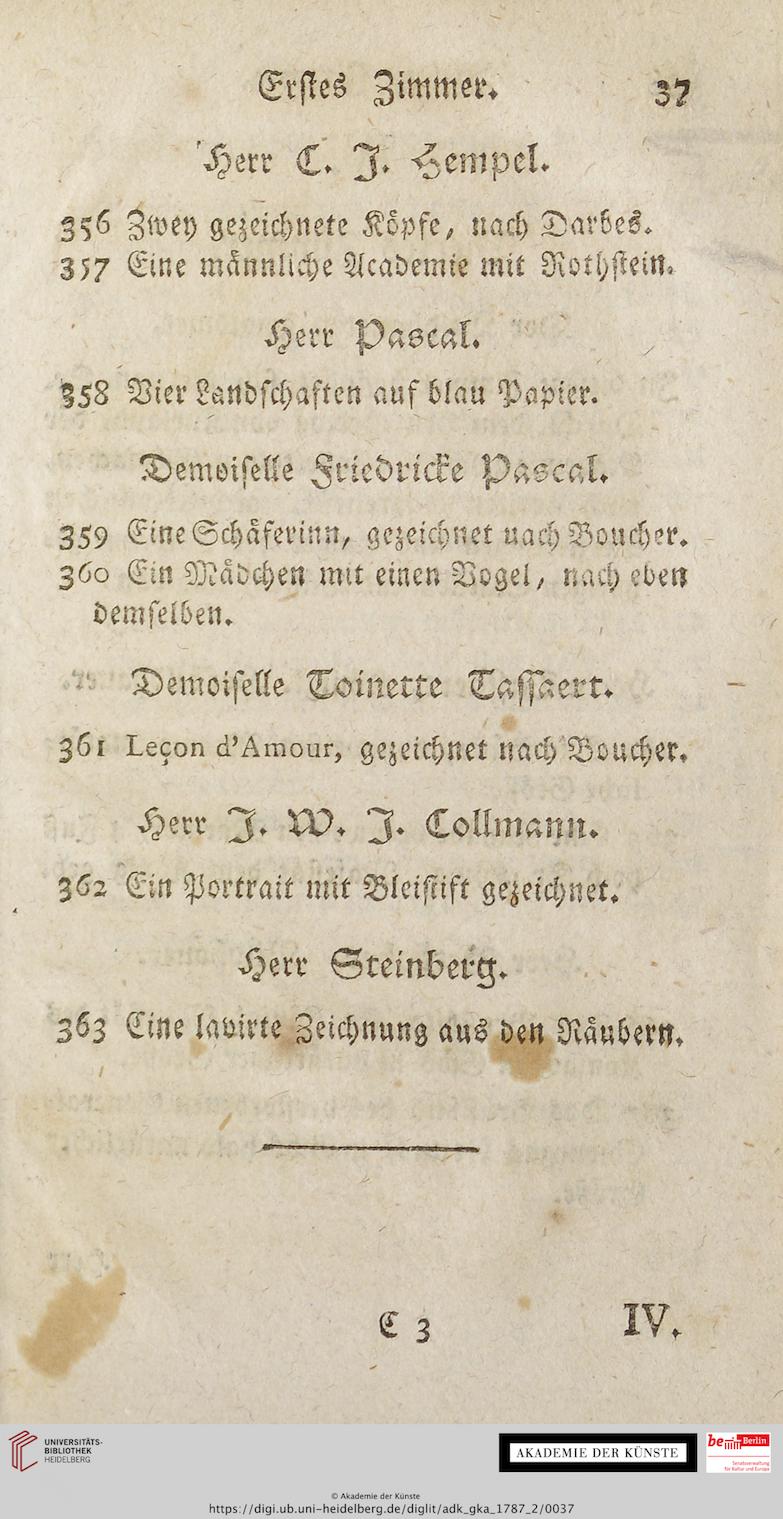 Erſtes Zimmer. 37
Herr C. J. Hempel.
356 Zwey gezeichnete Koͤpfe, nach Darbes.
357 Eine maͤnnliche Academie mit Rothſtein.
Herr Pascal.
358 Vier Landſchaften auf blau Papier.
Demoiſelle Friedricke Pascal.
359 Eine Schaͤferinn, gezeichnet nach Boucher.
360 Ein Maͤdchen mit einen Vogel, nach eben
demſelben.
Demoiſelle Toinette Taſſaert.
361 Leçon d'Amour, gezeichnet nach Boucher.
Herr J. W. J. Collmann.
362 Ein Portrait mit Bleiſtift gezeichnet.
Herr Steinberg.
363 Eine lavirte Zeichnung aus den Raͤubern.
C 3 IV.
UNIVERSITÄTS-
BIBLIOTHEK
HEIDELBERG
AKADEMIE DER KÜNSTE
be Berlin
Senatsverwaltung
für Kultur und Europa
© Akademie der Künste
https://digi.ub.uni-heidelberg.de/diglit/adk_gka_1787_2/0037